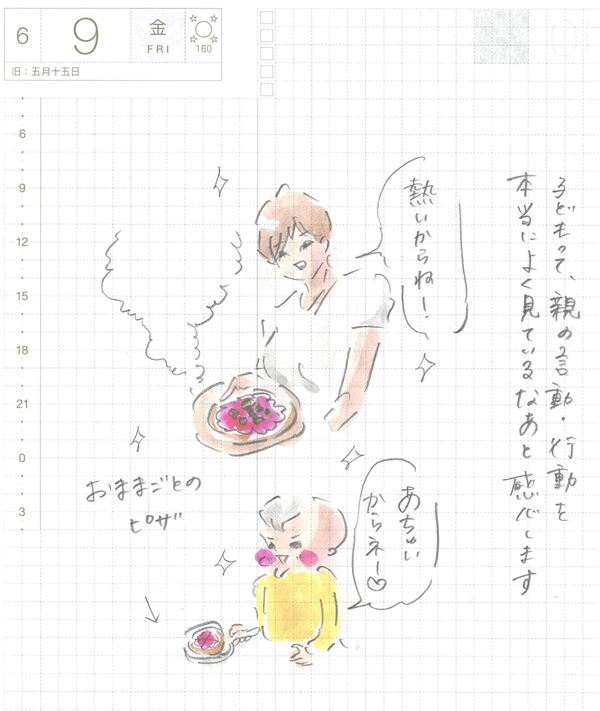 6 9 金 FRI 160
旧：五月十五日
6
9
12
15
18
21
0
3
子どもって、親の言動・行動を
本当によく見ているなあと感心します
熱いからねー！
あちゅい
からネー♡
おままごとの
ピザ